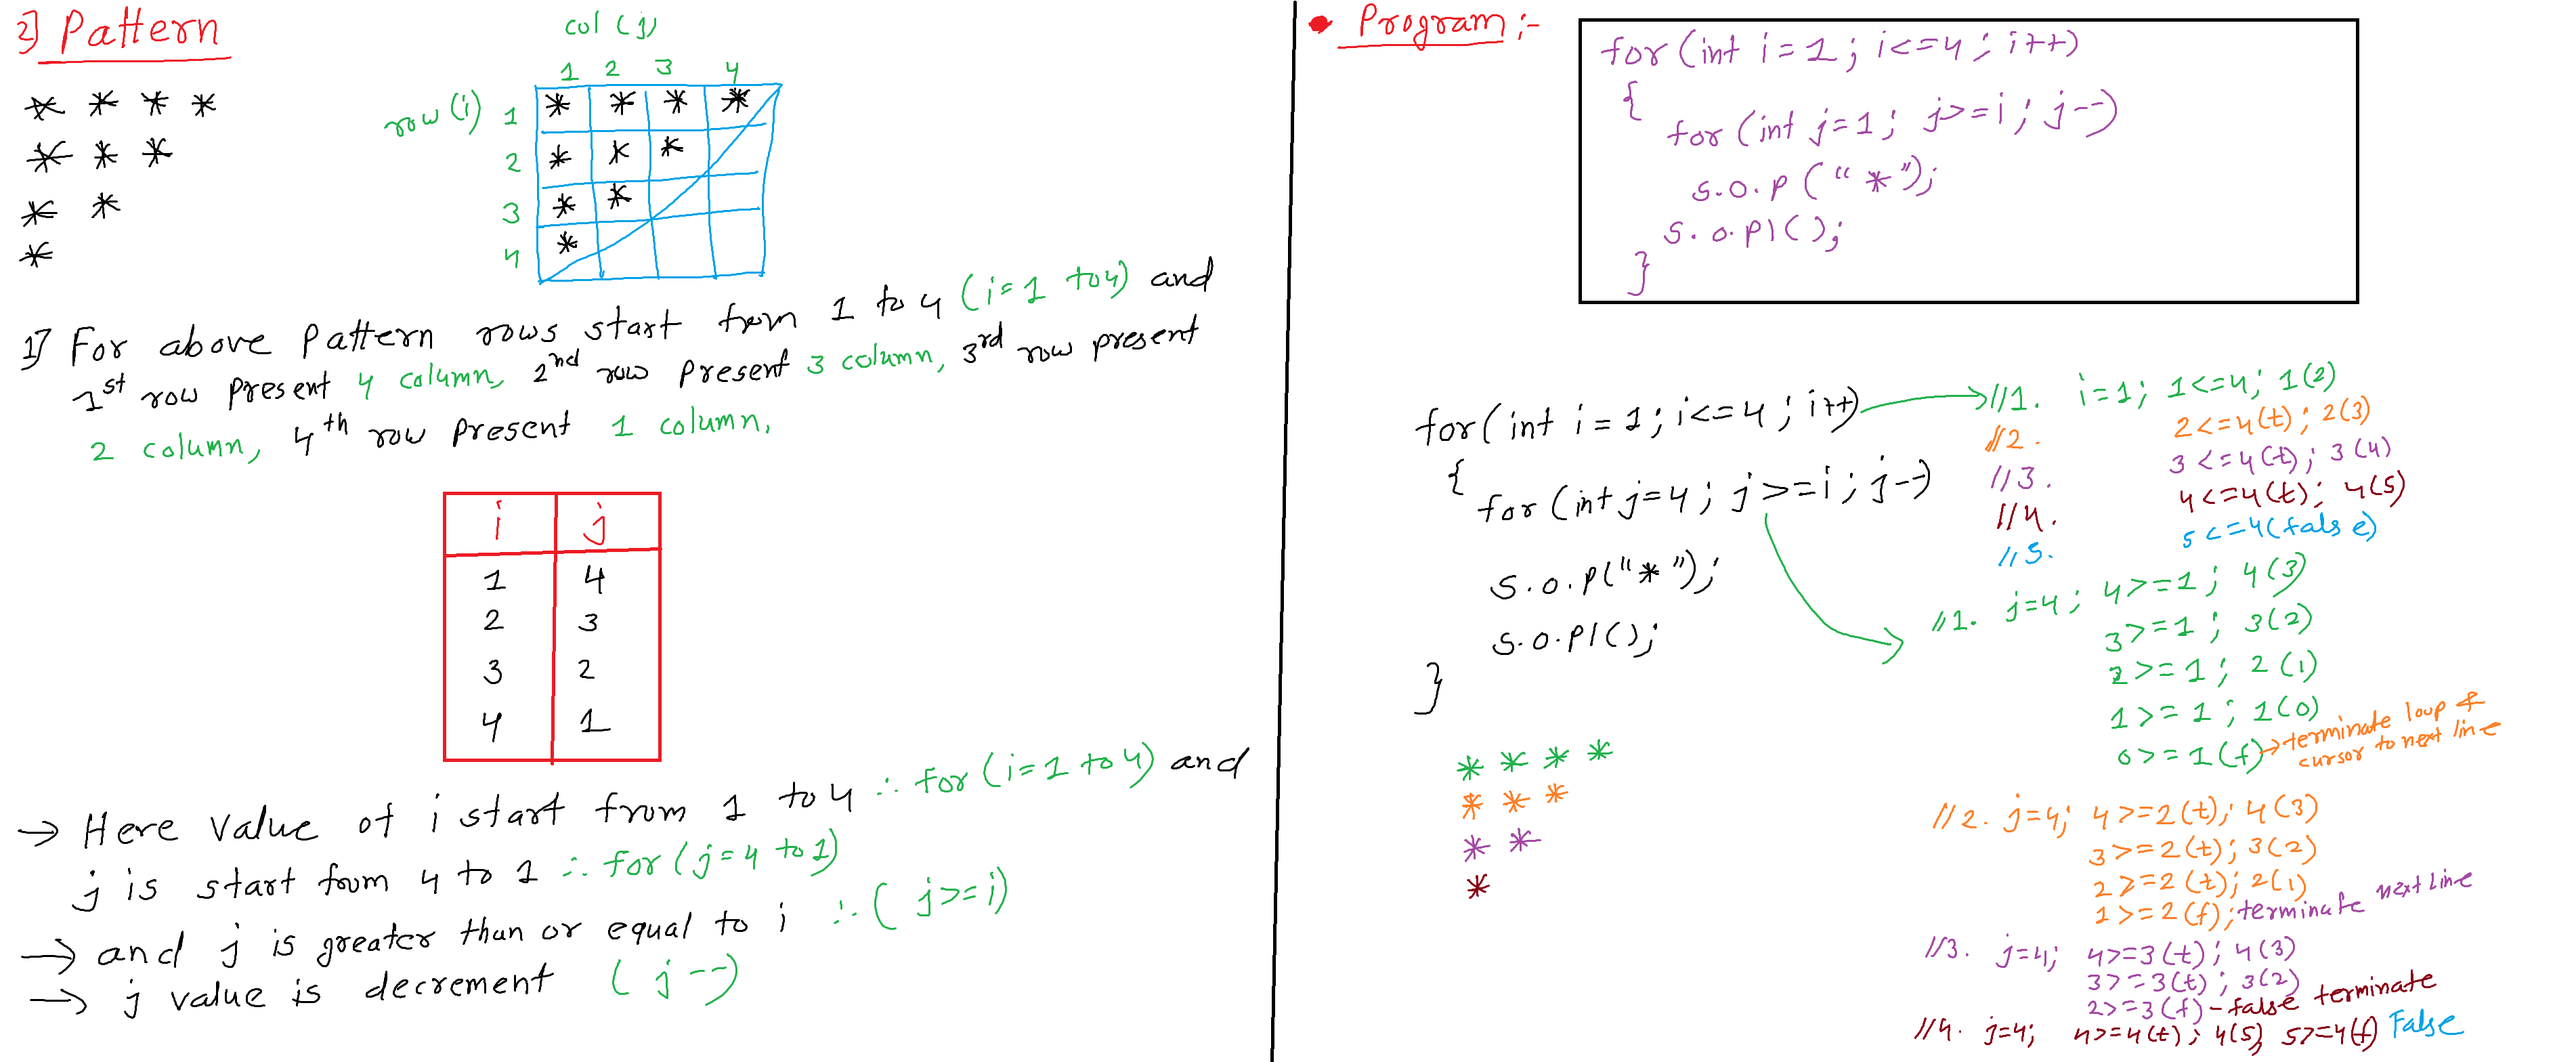 2] Pattern
* * * *
* * *
* *
*
col (j)
1 2 3 4
row (i) 1 * * * *
2 * * *
3 * *
4 *
1] For above pattern rows start from 1 to 4 (i=1 to 4) and
1st row present 4 column, 2nd row present 3 column, 3rd row present
2 column, 4th row present 1 column,
i j
1 4
2 3
3 2
4 1
→ Here value of i start from 1 to 4 ∴ for (i=1 to 4) and
j is start from 4 to 1 ∴ for (j=4 to 1)
→ and j is greater than or equal to i ∴ ( j>=i)
→ j value is decrement ( j--)
• Program :-
for (int i=1; i<=4; i++)
{
for (int j=1; j>=i; j--)
s.o.p ("*");
s.o.pl();
}
for( int i = 1; i<=4 ; i++) → //1. i=1; 1<=4; 1(2)
//2. 2<=4(t); 2(3)
//3. 3<=4(t); 3(4)
//4. 4<=4(t); 4(5)
//5. 5<=4(false)
{
for (int j=4; j>=i; j--)
s.o.p("*");
s.o.pl();
}
//1. j=4; 4>=1; 4(3)
3>=1; 3(2)
2>=1; 2(1)
1>=1; 1(0)
0>=1(f) → terminate loop &
cursor to next line
//2. j=4; 4>=2(t); 4(3)
3>=2(t); 3(2)
2>=2(t); 2(1)
1>=2(f); terminate next line
//3. j=4; 4>=3(t); 4(3)
3>=3(t); 3(2)
2>=3(f) - false terminate
//4. j=4; 4>=4(t); 4(5) 5>=4(f) False
* * * *
* * *
* *
*